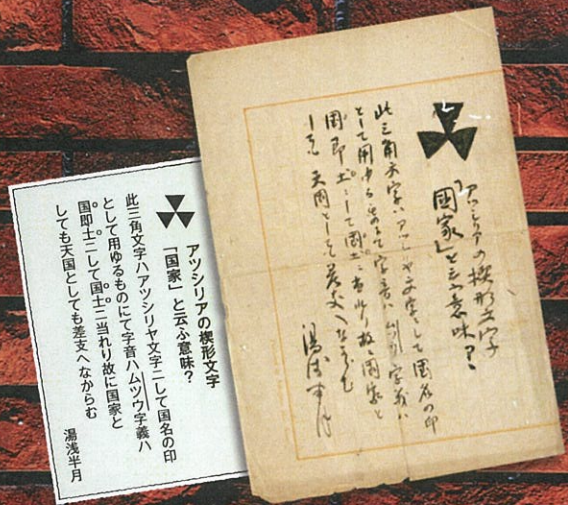 アツシリアの楔形文字
「國家」と云ふ意味?
此三角文字ハアツシリヤ文字ニして國名の印
として用ゆるものにて字音ハムツウ字義ハ
國即土ニして國土ニ当れり故ニ國家と
しても天國としても差支へなからむ
湯浅半月
アツシリアの楔形文字
「国家」と云ふ意味?
此三角文字ハアツシリヤ文字ニして国名の印
として用ゆるものにて字音ハムツウ字義ハ
国即土ニして国土ニ当れり故に国家と
しても天国としても差支へなからむ
湯浅半月